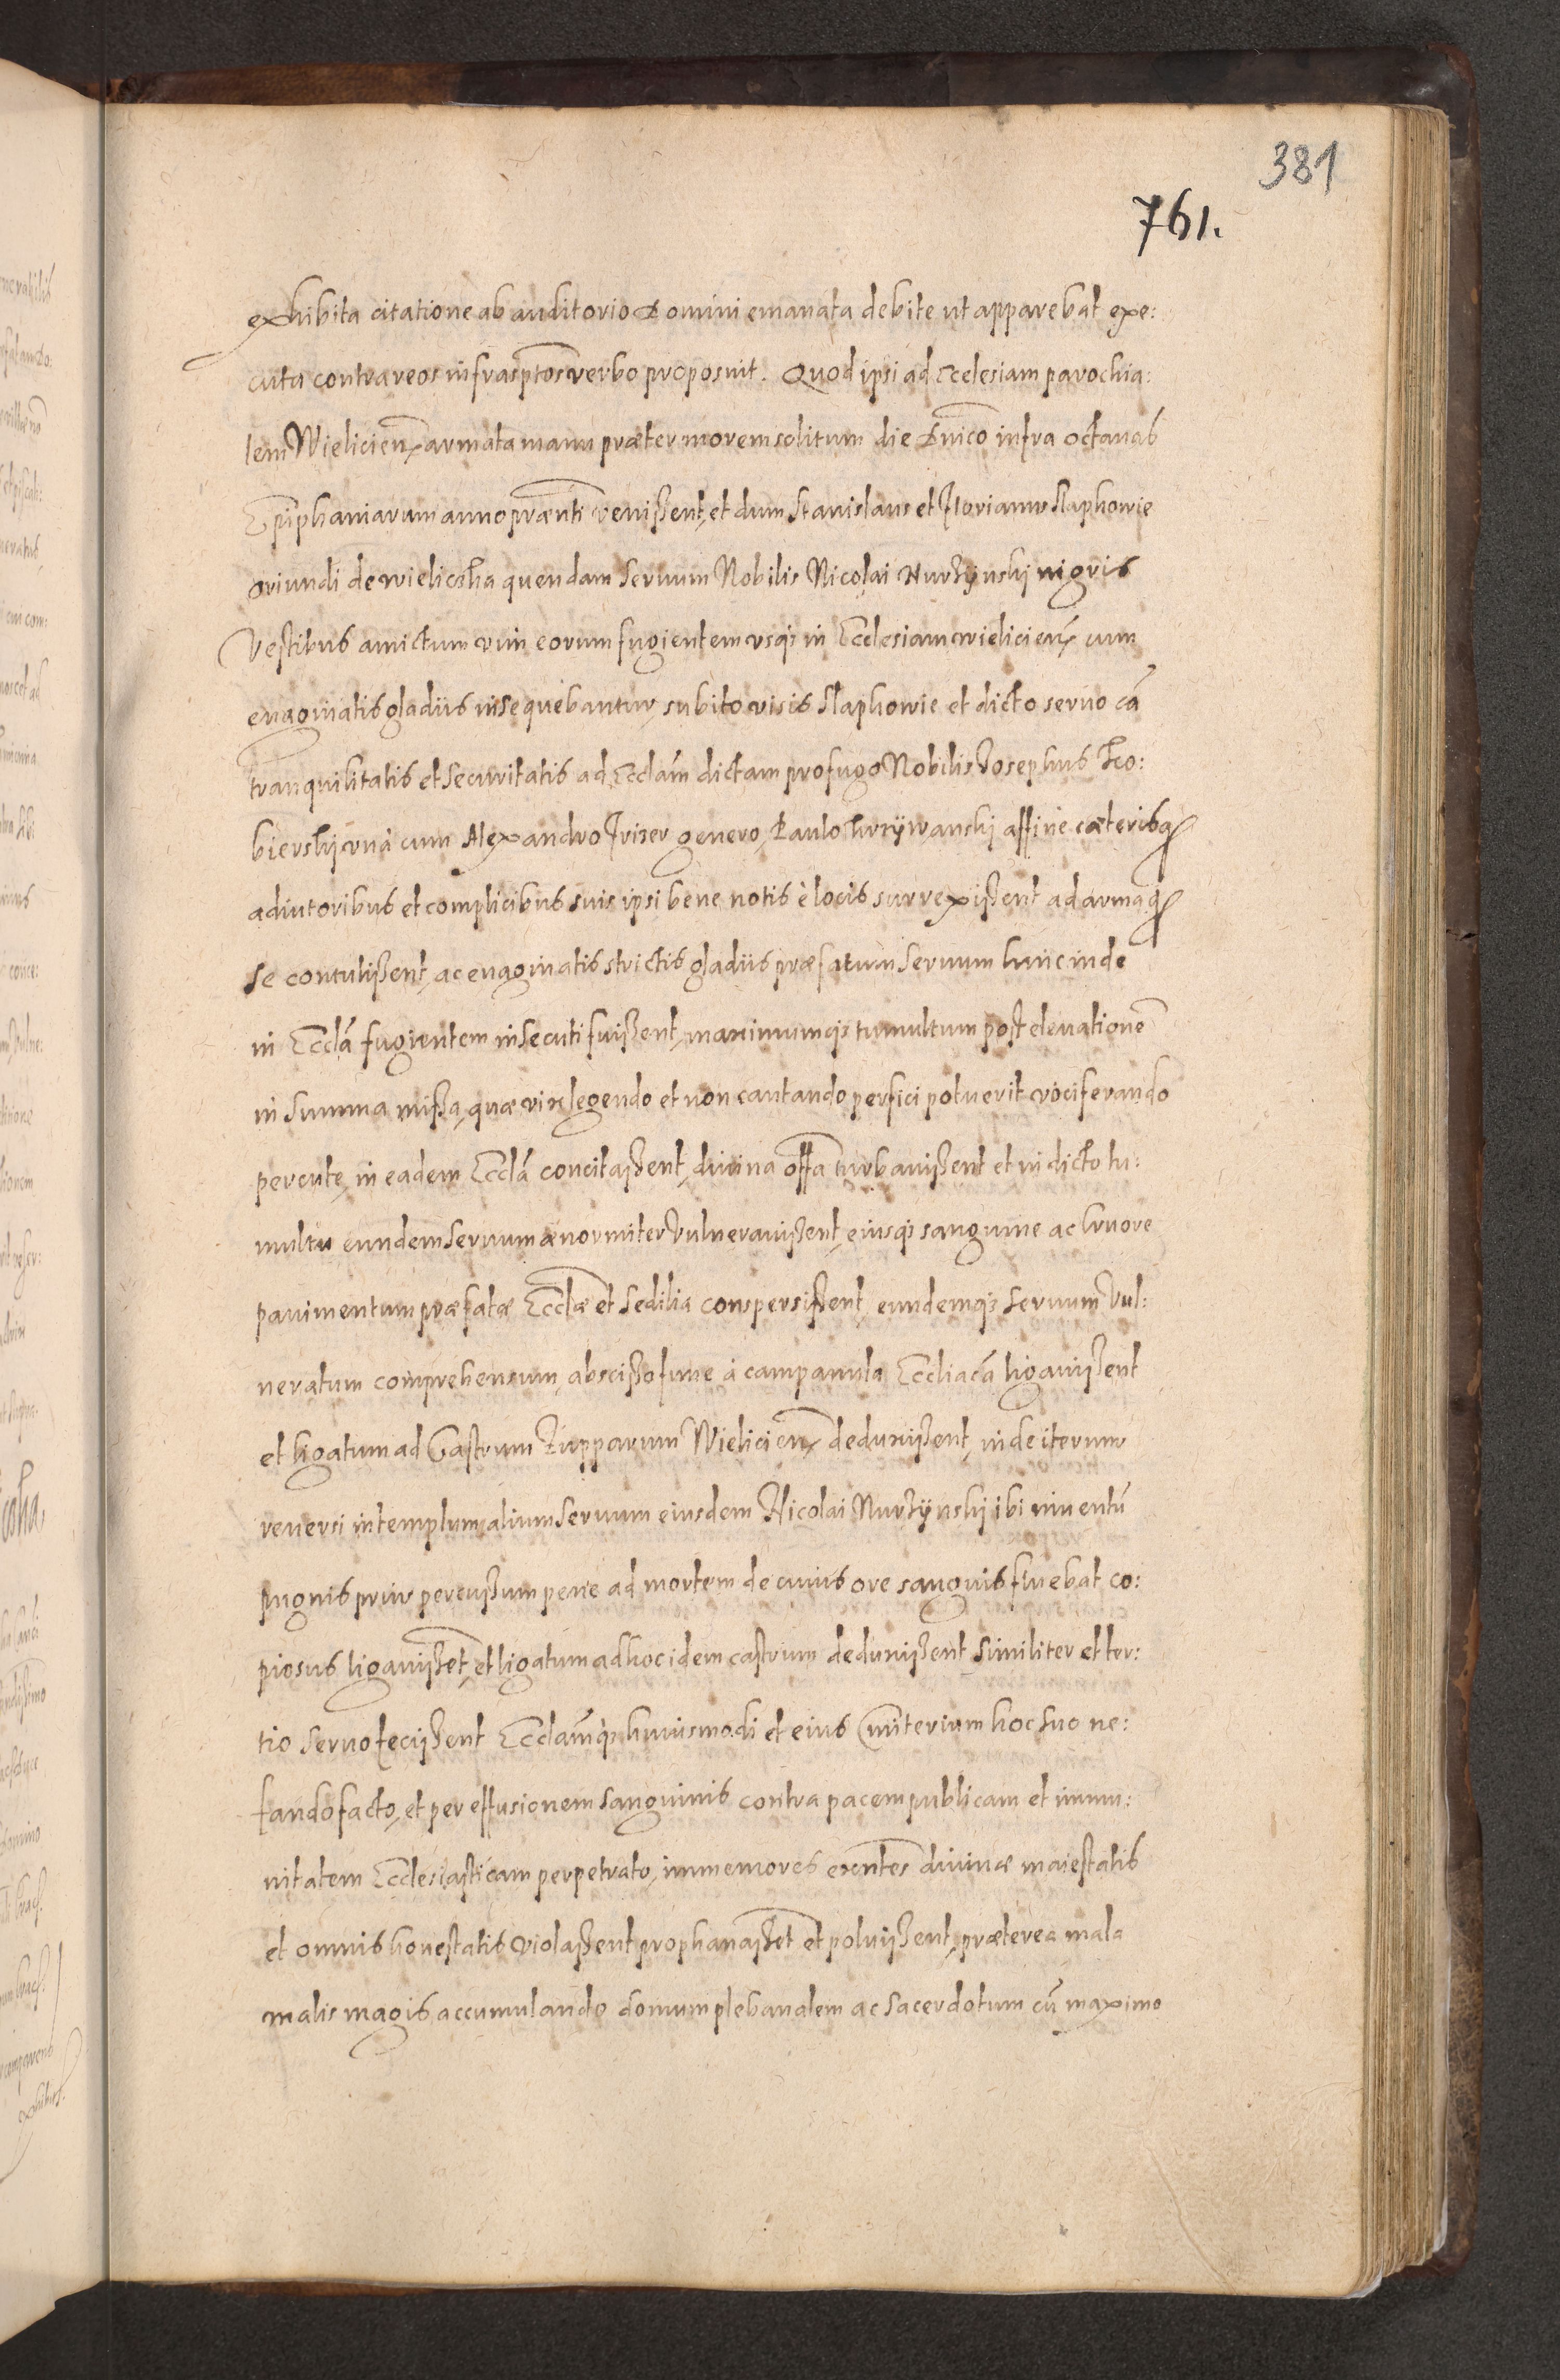 381
761.
exhibita citatione ab auditorio Domini emanata debite ut apparebat exe:
cuta contra reos infrasptos verbo proposuit. Quod ipsi ad Ecclesiam parochia:
lem Wielicien armata manu præter morem solitum die Dnico infra octavas
Epiphaniarum anno prænti venissent, et dum Stanislaus et Florianus Slaphowie
oriundi de wieliczka quendam servum Nobilis Nicolai Nurzÿnskj nigris
vestibus amictum vim eorum fugientem vsq in Ecclesiam wielicien cum
evaginatis gladiis insequebantur, subito visis Slaphowie et dicto servo cã
tranquilitatis et securitatis ad Ecclam dictam profugo Nobilis Josephus
bierskj unà cum Alexandro genero, Paulo affine cæterisq
adiutoribus et complicibus suis ipsi bene notis è locis surrexissent ad armaq
se contulissent, ac evaginatis strictis gladiis præfatum servum hinc inde
in Ecclã fugientem insecuti fuissent, maximumq tumultum post elevationẽ
in summa missa, quæ vix legendo et non cantando perfici potuerit vociferando
percute, in eadem Ecclã concitassent, divina offa turbavissent et in dicto tu:
multu eundem servum ænormiter vulneravissent, eiusq sanguine ac cruore
pavimentum præfatæ Ecclæ et sedilia conspersissent, eundemq servum vul:
neratum comprehensum, abscisso fune à campanula Eccliacã ligavissent
et ligatum ad Castrum Zupparum Wielicien deduxissent, inde iterum
reversi in templum, alium servum eiusdem Nicolai Nurzÿnskj ibi inventũ
pugnis prius percussum pene ad mortem de cuius ore sanguis fluebat co:
piosus ligavisset, et ligatum ad hoc idem castrum deduxissent, similiter et ter:
tio servo fecissent Ecclamq huiusmodi et eius Cmiterium hoc suo ne:
fando facto, et per effusionem sanguinis contra pacem publicam et immu:
nitatem Ecclesiasticam perpetrato, immemores exntes divinæ maiestatis
et omnis honestatis violassent prophanasset et poluissent, præterea mala
malis magis accumulando domum plebanalem ac sacerdotum cũ maximo